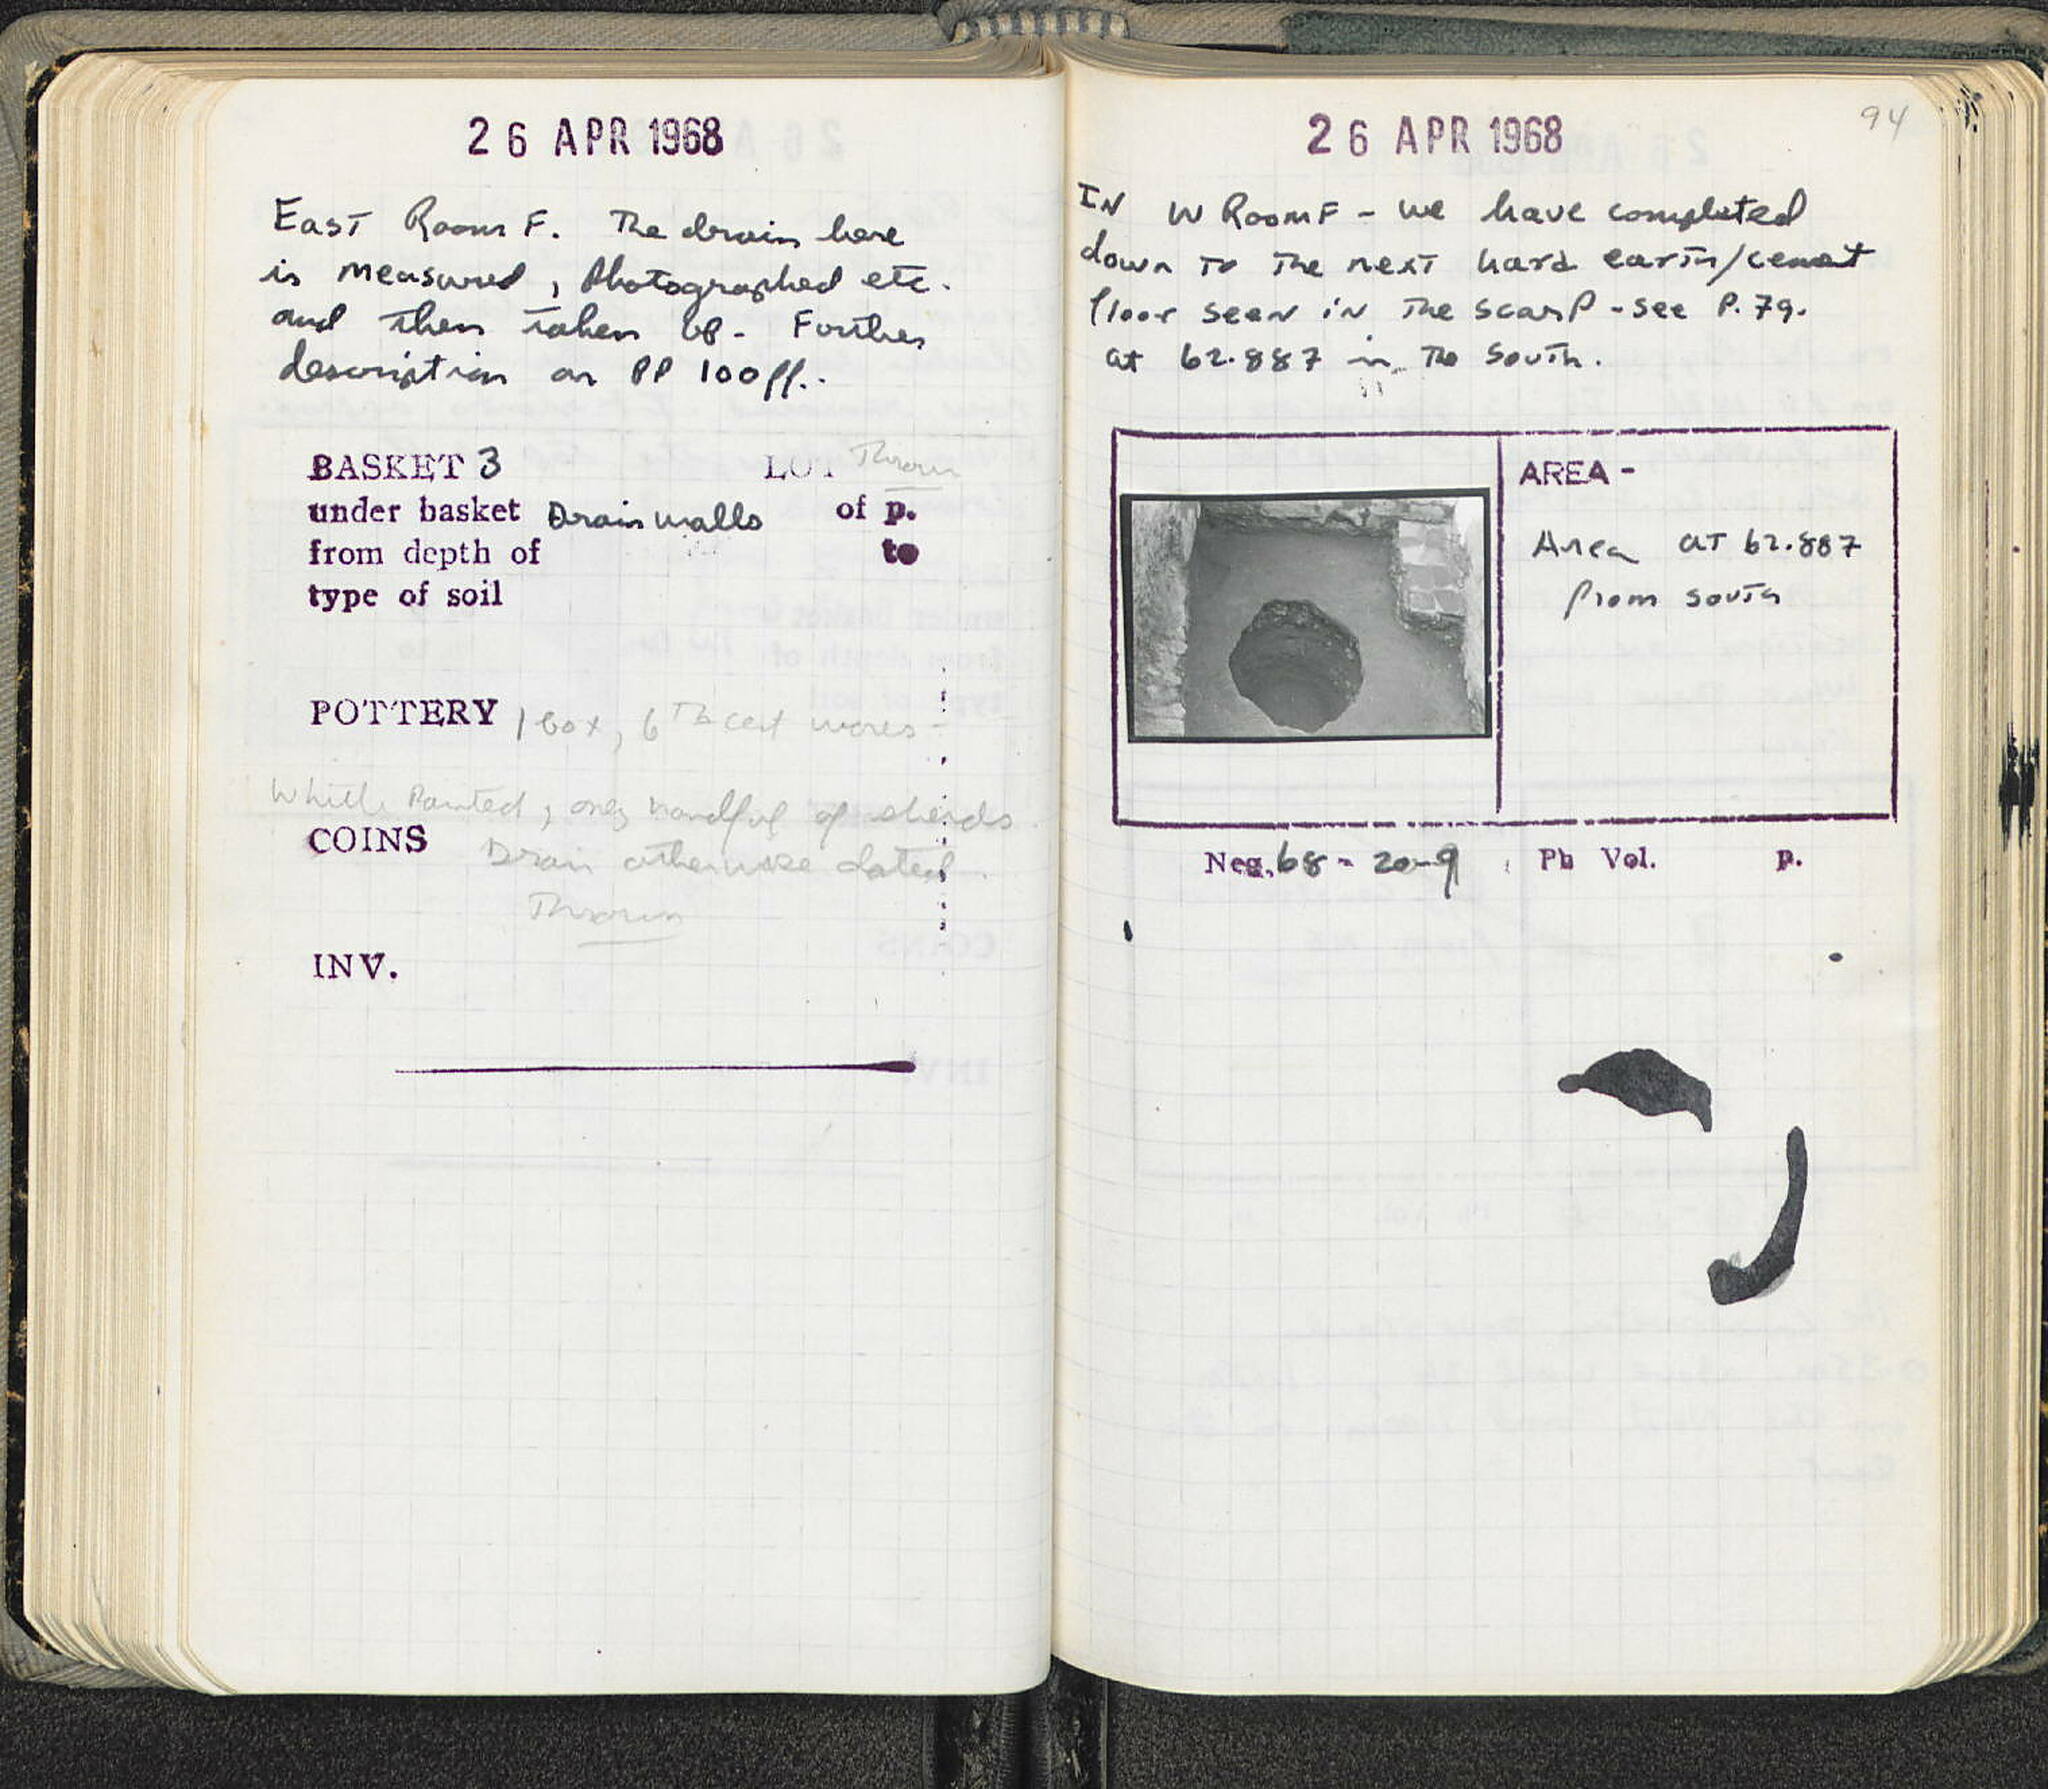 26 APR 1968
East Room F. The drain here
is measured, photographed etc.
and then taken up. Further
description on PP 100ff..
BASKET 3 LOT Thrown
under basket Drain walls of p.
from depth of to
type of soil
POTTERY 1 box, 6th cent wares -
White Painted, only handful of sherds.
COINS Drain otherwise dated.
Thrown
INV.
26 APR 1968
94
IN W Room F - we have completed
down to the next hard earth/cement
floor seen in the scarp - see P. 79.
at 62.887 in the South.
AREA -
Area at 62.887
from south
Neg. 68 - 20-9 Ph Vol. p.